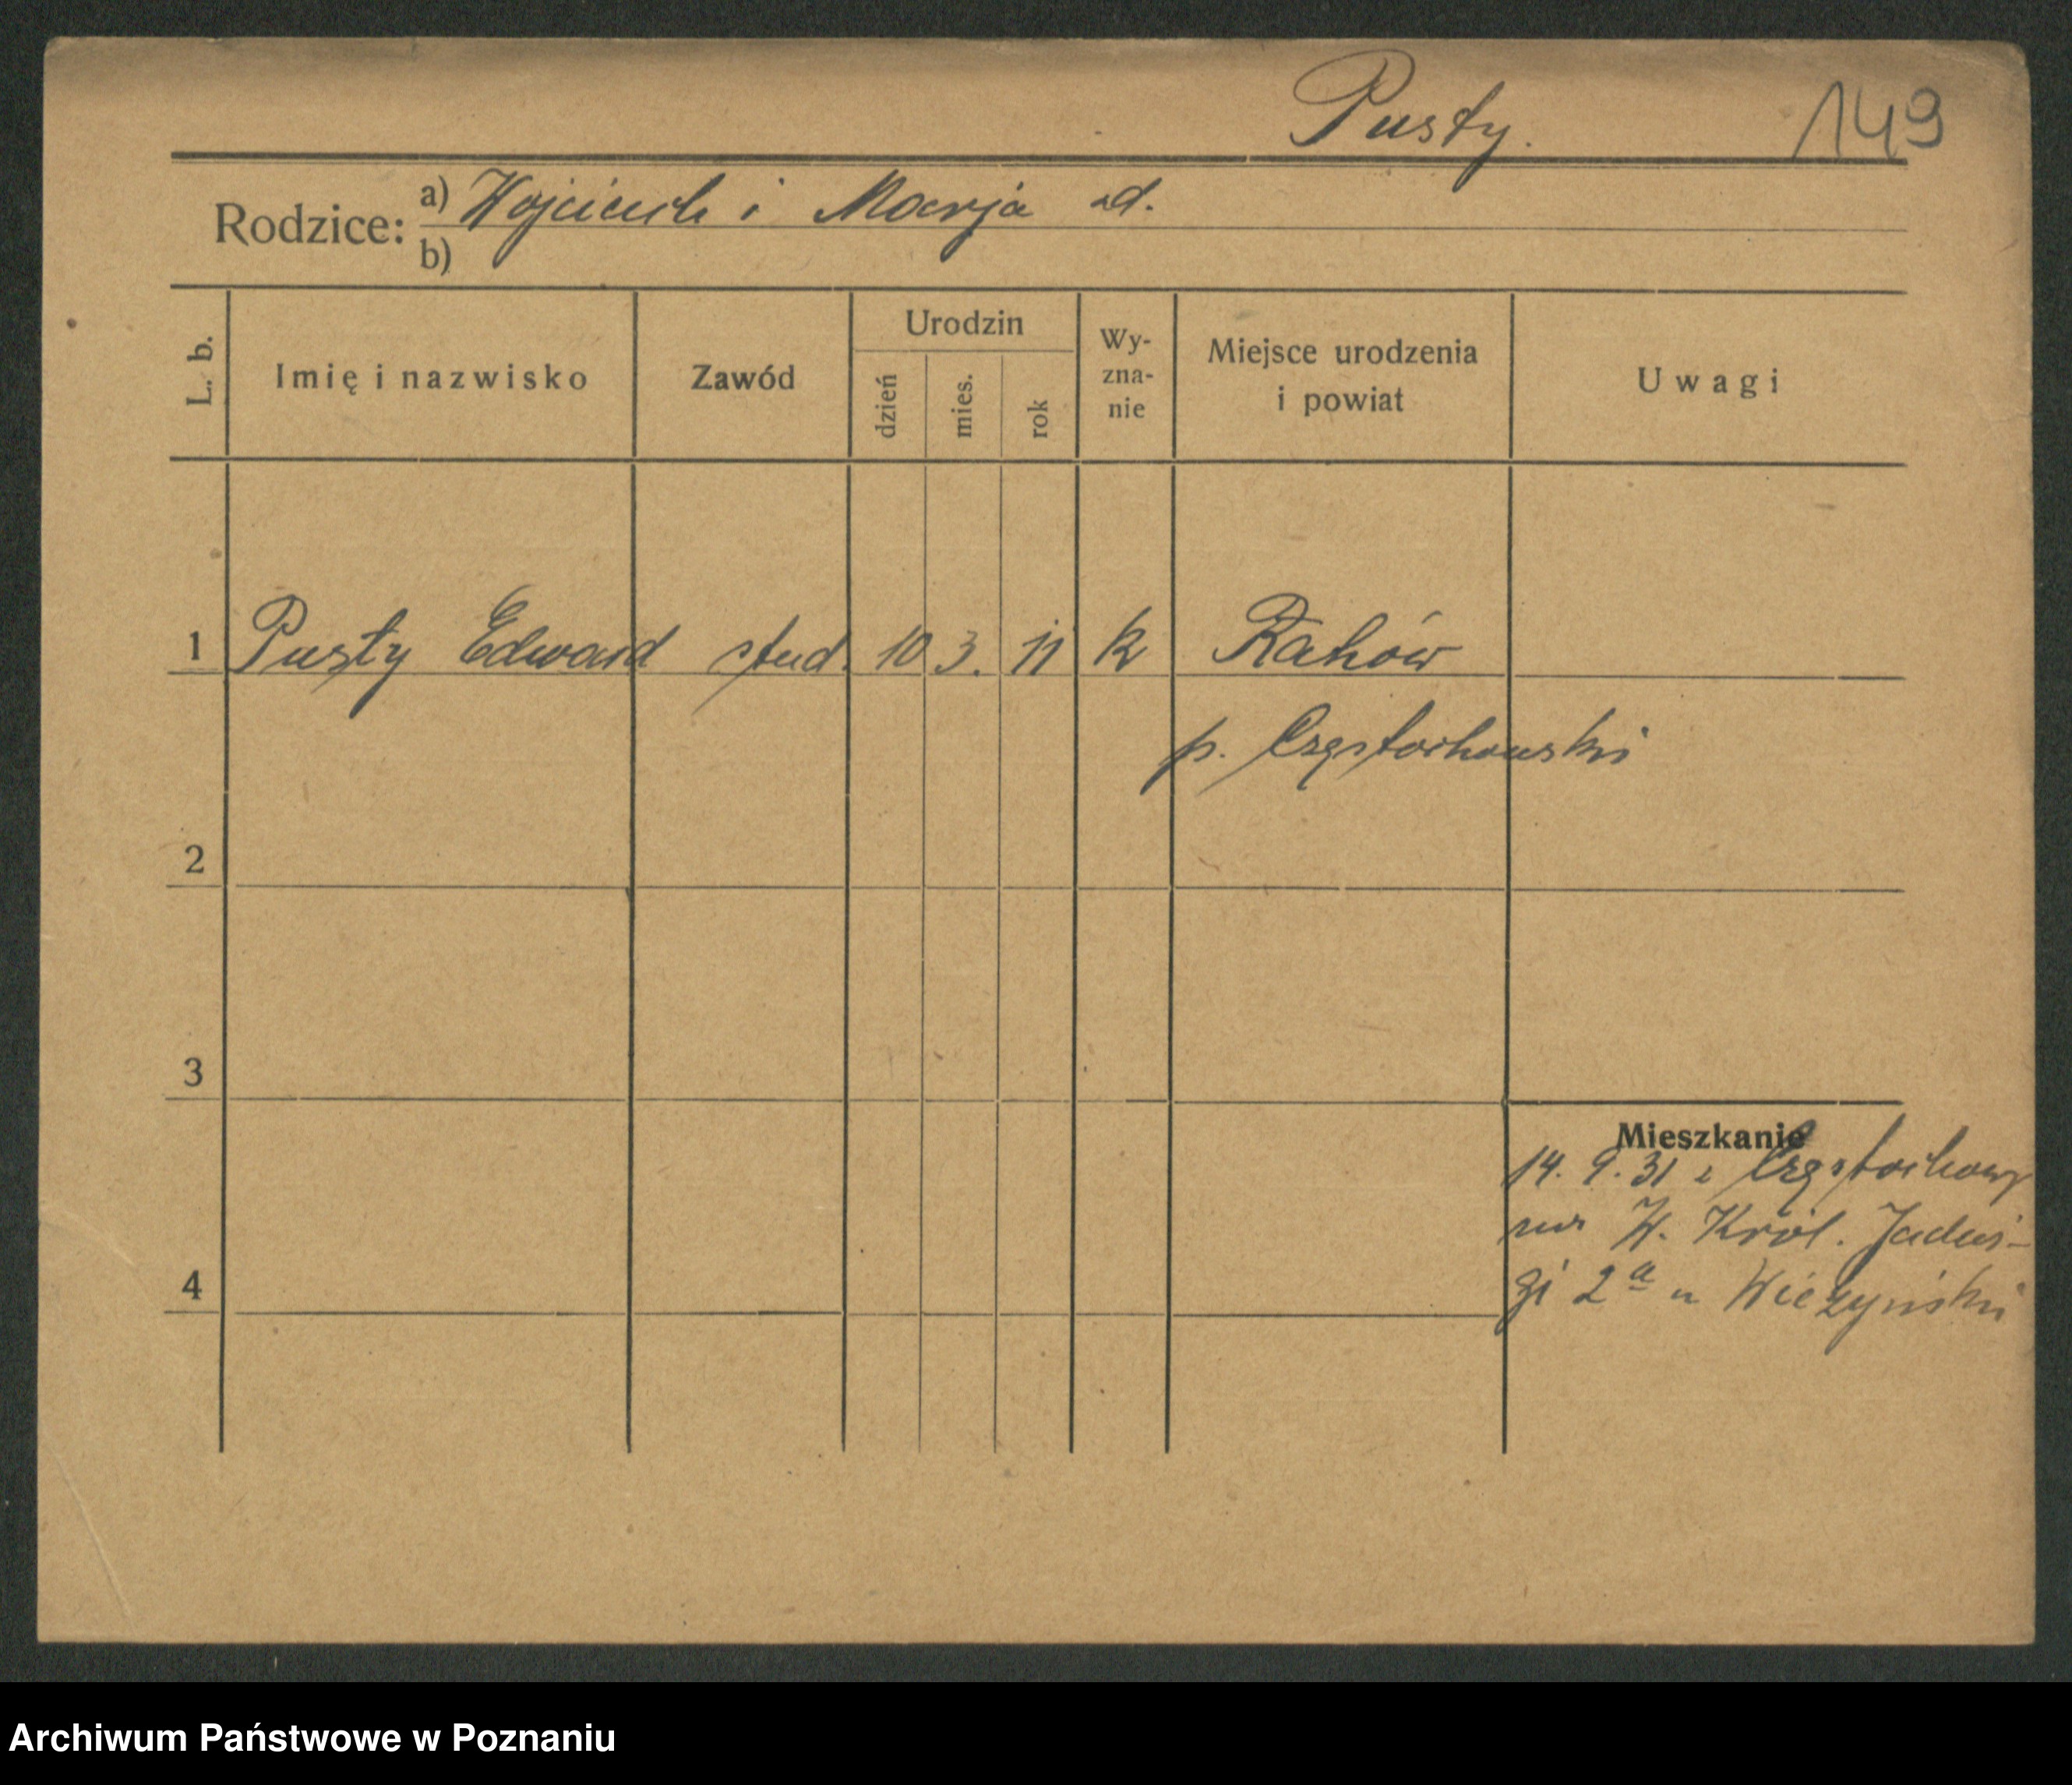 Pusty. 149
Rodzice: a) Wojciech i Marja
b)
L. b. Imię i nazwisko Zawód Urodzin dzień mies. rok Wy-zna-nie Miejsce urodzenia i powiat Uwagi
1 Pusty Edward stud. 10 3. 11 k Raków
p. Częstochowski
2
3
Mieszkanie
14. 9. 31 z Częstochowy
W. Król. Jadwi-
4 gi 2a u
Archiwum Państwowe w Poznaniu